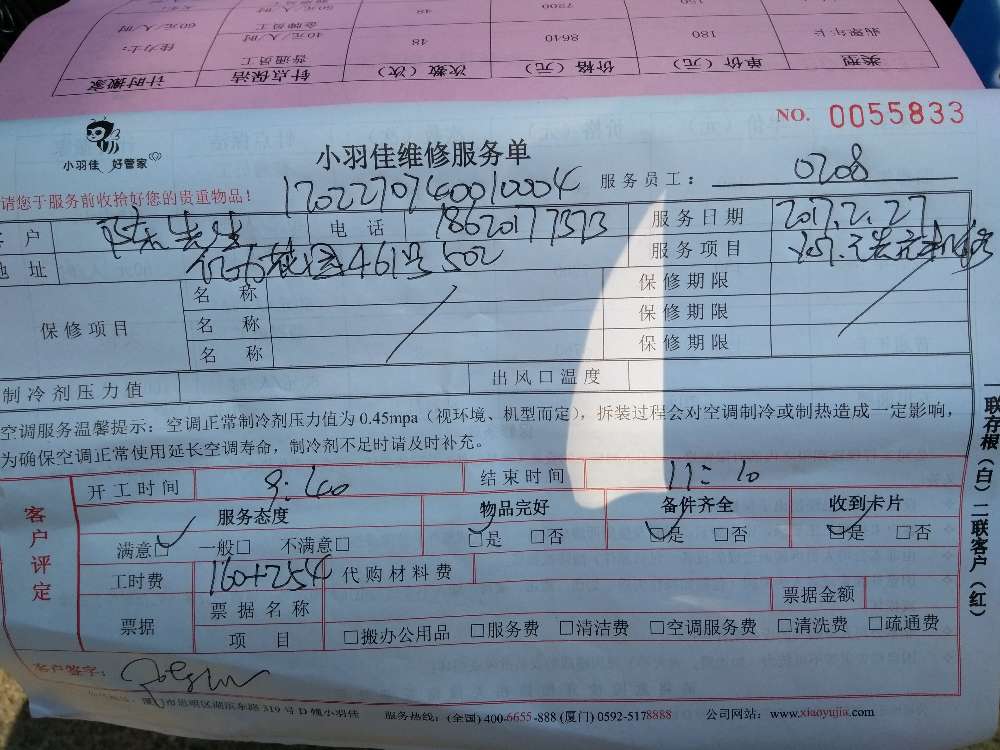 类型 单价（元） 价格（元） 次数（次） 钟点保洁 计时搬家
翡翠年卡 180 8640 48 普通员工 40元/人/时 佳力士：
7200 48 金牌员工 50元/人/时 60元/人/时
NO. 0055833
小羽佳 好管家
小羽佳维修服务单
请您于服务前收拾好您的贵重物品！
1702270740010004
服务员工： 0208
客户 陈先生 电话 18620177373 服务日期 2017.2.27
地址 461号502 服务项目
保修项目 名称 保修期限
名称 保修期限
名称 保修期限
制冷剂压力值 出风口温度
空调服务温馨提示：空调正常制冷剂压力值为0.45mpa（视环境、机型而定），拆装过程会对空调制冷或制热造成一定影响，
为确保空调正常使用延长空调寿命，制冷剂不足时请及时补充。
客户评定
开工时间 9:40 结束时间 11:10
服务态度 物品完好 备件齐全 收到卡片
满意□ 一般□ 不满意□ □是 □否 □是 □否 □是 □否
工时费 160+254 代购材料费
票据 票据名称 票据金额
项目 □搬办公用品 □服务费 □清洁费 □空调服务费 □清洗费 □疏通费
客户签字：
市思明区湖滨东路319号D幢小羽佳 服务热线：(全国) 400-6655-888 (厦门) 0592-5178888 公司网站：www.xiaoyujia.com
一联存根（白） 二联客户（红）